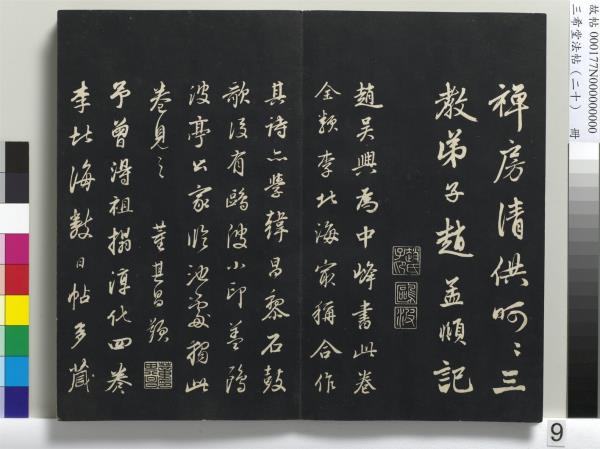 故帖 000177N000000000
三希堂法帖（二十） 冊
禪房清供呵〻三
教弟子趙孟頫記
趙氏子昂
鷗波
趙吳興為中峰書此卷
全類李北海冣稱合作
其詩亦學韓昌黎石鼓
歌後有鷗波小印盖鷗
波亭公家臨池處獨此
卷見之 董其昌題
予曾得祖搨淳化四卷
李北海數日帖多藏
9